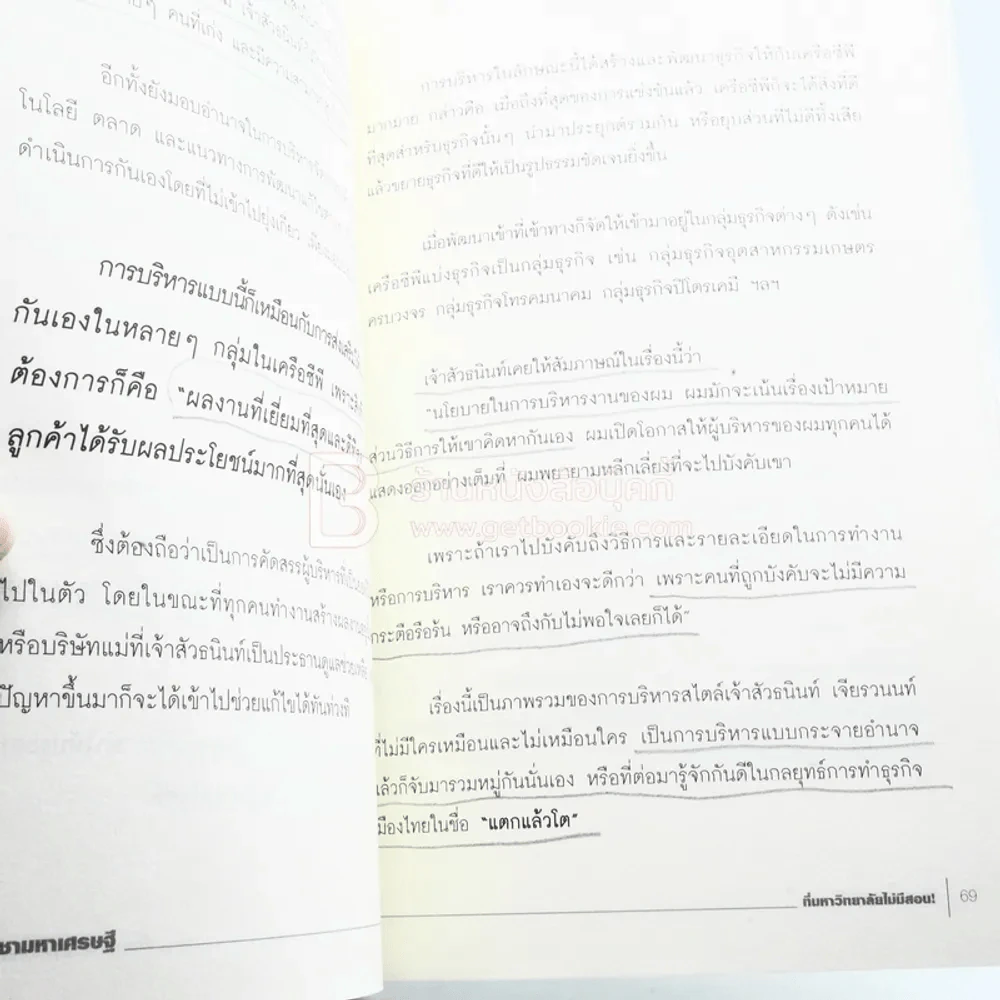 เจ้าสัวธนินท์
คนที่เก่ง และมีความสามารถ
อีกทั้งยังมอบอำนาจในการบริหารจัดการ
โนโลยี ตลาด และแนวทางการพัฒนาแก้ไข
ดำเนินการกันเองโดยที่ไม่เข้าไปยุ่งเกี่ยว
การบริหารแบบนี้ก็เหมือนกับการส่งเสริมให้
กันเองในหลายๆ กลุ่มในเครือซีพี เพราะสิ่งที่
ต้องการก็คือ “ผลงานที่เยี่ยมที่สุดและดีที่สุด
ลูกค้าได้รับผลประโยชน์มากที่สุดนั่นเอง
ซึ่งต้องถือว่าเป็นการคัดสรรผู้บริหารที่เป็น
ไปในตัว โดยในขณะที่ทุกคนทำงานสร้างผลงาน
หรือบริษัทแม่ที่เจ้าสัวธนินท์เป็นประธานดูแลช่วย
ปัญหาขึ้นมาก็จะได้เข้าไปช่วยแก้ไขได้ทันท่วงที
ชามหาเศรษฐี
การบริหารในลักษณะนี้ได้สร้างและพัฒนาธุรกิจให้กับเครือซีพี
มากมาย กล่าวคือ เมื่อถึงที่สุดของการแข่งขันแล้ว เครือซีพีก็จะได้สิ่งที่ดี
ที่สุดสำหรับธุรกิจนั้นๆ นำมาประยุกต์รวมกัน หรือยุบส่วนที่ไม่ดีทิ้งเสีย
แล้วขยายธุรกิจที่ดีให้เป็นรูปธรรมชัดเจนยิ่งขึ้น
เมื่อพัฒนาเข้าที่เข้าทางก็จัดให้เข้ามาอยู่ในกลุ่มธุรกิจต่างๆ ดังเช่น
เครือซีพีแบ่งธุรกิจเป็นกลุ่มธุรกิจ เช่น กลุ่มธุรกิจอุตสาหกรรมเกษตร
ครบวงจร กลุ่มธุรกิจโทรคมนาคม กลุ่มธุรกิจปิโตรเคมี ฯลฯ
เจ้าสัวธนินท์เคยให้สัมภาษณ์ในเรื่องนี้ว่า
“นโยบายในการบริหารงานของผม ผมมักจะเน้นเรื่องเป้าหมาย
ส่วนวิธีการให้เขาคิดหากันเอง ผมเปิดโอกาสให้ผู้บริหารของผมทุกคนได้
แสดงออกอย่างเต็มที่ ผมพยายามหลีกเลี่ยงที่จะไปบังคับเขา
ร้านหนังสือบุคกี้
www.getbookie.com
เพราะถ้าเราไปบังคับถึงวิธีการและรายละเอียดในการทำงาน
หรือการบริหาร เราควรทำเองจะดีกว่า เพราะคนที่ถูกบังคับจะไม่มีความ
กระตือรือร้น หรืออาจถึงกับไม่พอใจเลยก็ได้”
เรื่องนี้เป็นภาพรวมของการบริหารสไตล์เจ้าสัวธนินท์ เจียรวนนท์
ที่ไม่มีใครเหมือนและไม่เหมือนใคร เป็นการบริหารแบบกระจายอำนาจ
แล้วก็จับมารวมหมู่กันนั่นเอง หรือที่ต่อมารู้จักกันดีในกลยุทธ์การทำธุรกิจ
เมืองไทยในชื่อ “แตกแล้วโต”
ที่มหาวิทยาลัยไม่มีสอน! 69